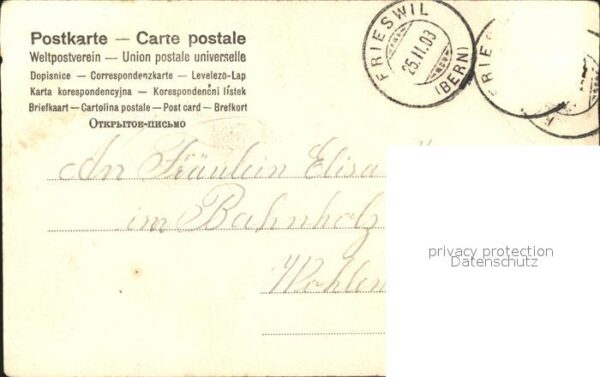 Postkarte — Carte postale
Weltpostverein — Union postale universelle
Dopisnice — Correspondenzkarte — Levelező-Lap
Karta korespondencyjna — Korespondenční lístek
Briefkaart — Cartolina postale — Post card — Brefkort
Открытое-письмо
FRIESWIL
25.II.03
(BERN)
FRIE
An Fräulein Elisa
im Bahnholz
Wohlen
privacy protection
Datenschutz